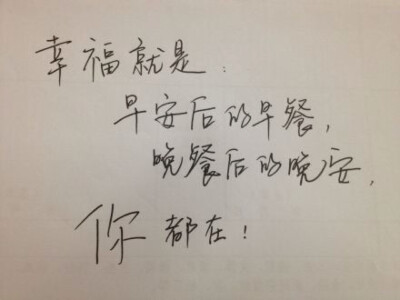 幸福就是:
早安后的早餐,
晚餐后的晚安,
你都在!